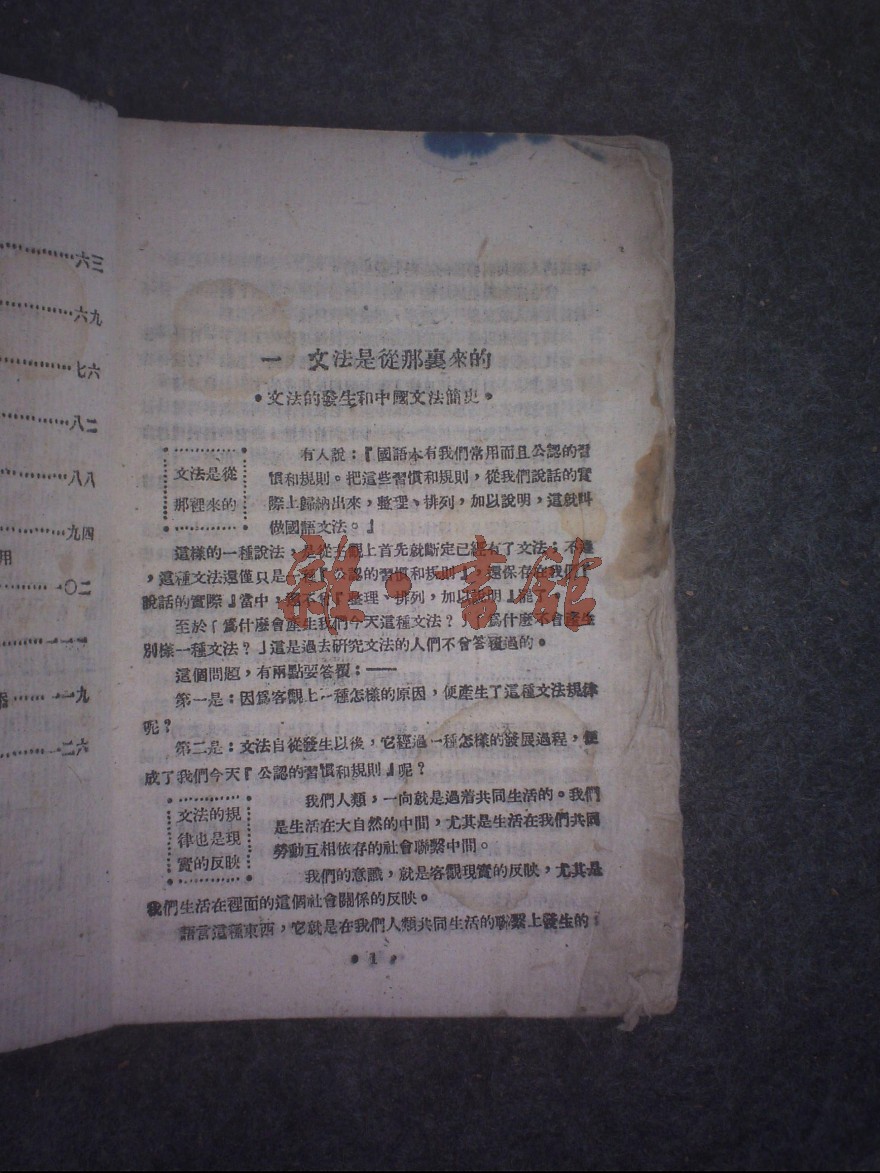 三六
六九
七六
八二
八八
九四
用
一〇二
一一一
一一九
一二六
一 文法是從那裏來的
•文法的發生和中國文法簡史•
文法是從
那裡來的
有人說：『國語本有我們常用而且公認的習
慣和規則。把這些習慣和規則，從我們說話的實
際上歸納出來，整理、排列，加以說明，這就叫
做國語文法。』
這樣的一種說法，是從主觀上首先就斷定已經有了文法；不過
，這種文法還僅只是一種『公認的習慣和規則』，還保存在我們『
說話的實際』當中，還不會『整理、排列，加以說明』罷了。
至於「爲什麼會產生我們今天這種文法？」「爲什麼不會產生
別樣一種文法？」這是過去研究文法的人們不會答覆過的。
這個問題，有兩點要答覆：——
第一是：因爲客觀上一種怎樣的原因，便產生了這種文法規律
呢？
第二是：文法自從發生以後，它經過一種怎樣的發展過程，便
成了我們今天『公認的習慣和規則』呢？
文法的規
律也是現
實的反映
我們人類，一向就是過着共同生活的。我們
是生活在大自然的中間，尤其是生活在我們共同
勞動互相依存的社會聯繫中間。
我們的意識，就是客觀現實的反映，尤其是
我們生活在裡面的這個社會關係的反映。
語言這種東西，它就是在我們人類共同生活的聯繫上發生的；
•1•
雜·書館